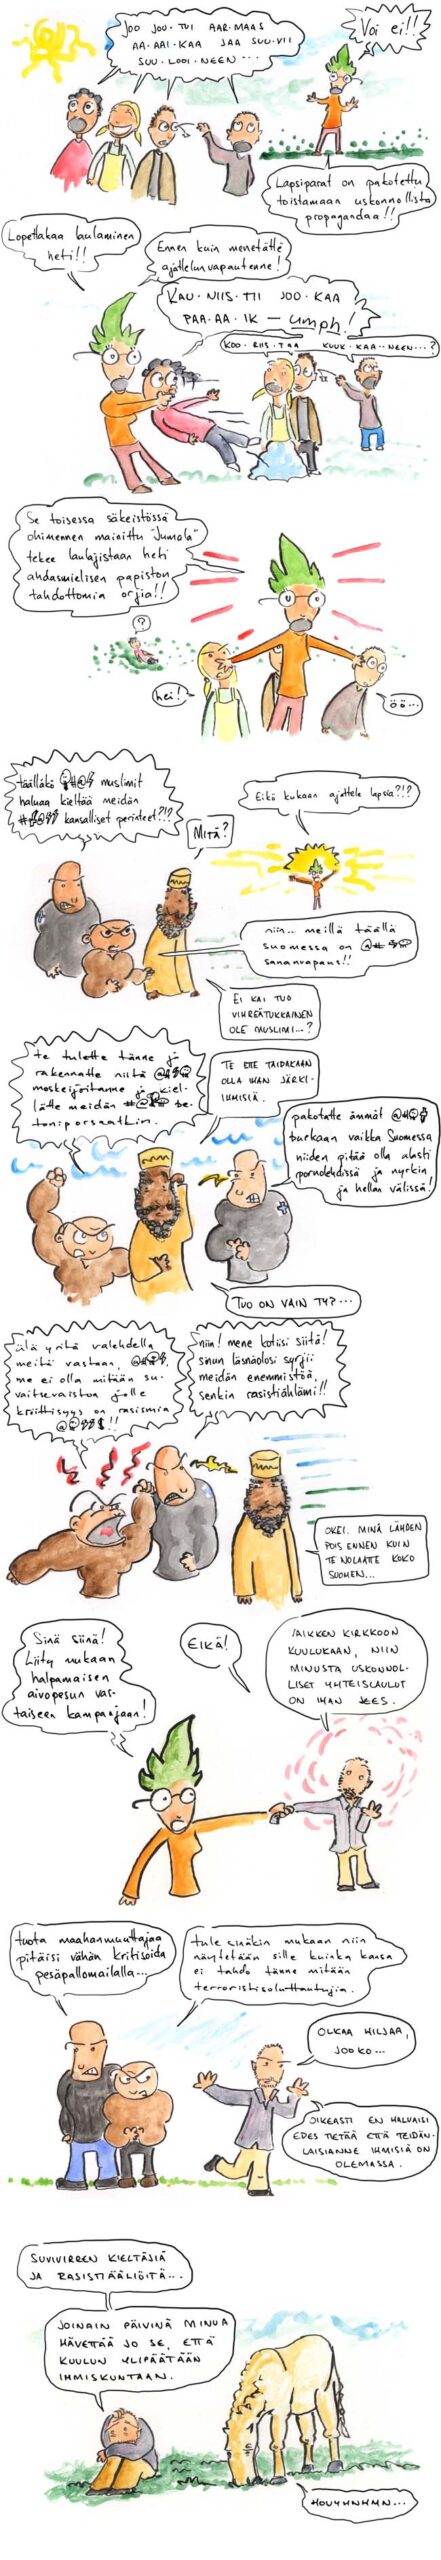 JOO JOU·TUI AAR·MAAS
AA·AAI·KAA JAA SUU·VII
SUU·LOOI·NEEN···
Voi ei!!
Lapsiparat on pakotettu
toistamaan uskonnollista
propagandaa!!
Lopettakaa laulaminen
heti!!
Ennen kuin menetätte
ajattelunvapautenne!
KAU·NIIS·TII JOO·KAA
PAA·AA·IK — umph!
KOO·RIIS·TAA KUUK·KAA··NEEN···?
Se toisessa säkeistössä
ohimennen mainittu "Jumala"
tekee laulajistaan heti
ahdasmielisen papiston
tahdottomia orjia!!
?
hei!
öö...
täälläkö @#@$ muslimit
haluaa kieltää meidän
kansalliset perinteet?!?
MITÄ?
Eikö kukaan ajattele lapsia?!?
niin... meillä täällä
suomessa on
sananvapaus!!
EI KAI TUO
VIHREÄTUKKAINEN
OLE MUSLIMI...?
te tulette tänne ja
rakennatte niitä
moskeijoitanne ja kiel-
lätte meidän be-
toniporsaatkin.
TE ETTE TAIDAKAAN
OLLA IHAN JÄRKI-
IHMISIÄ.
pakotatte ämmät
burkaan vaikka Suomessa
niiden pitää olla alasti
pornolehdissä ja nyrkin
ja hellan välissä!
TUO ON VAIN TY?...
älä yritä valehdella
meitä vastaan,
me ei olla mitään su-
vaitsevaistoa jolle
kriittisyys on rasismia
niin! mene kotiisi siitä!
sinun läsnäolosi syrjii
meidän enemmistöä,
senkin rasistiählämi!!
OKEI. MINÄ LÄHDEN
POIS ENNEN KUIN
TE NOLAATTE KOKO
SUOMEN...
Sinä siinä!
Liity mukaan
halpamaisen
aivopesun vas-
taiseen kampanjaan!
EIKÄ!
VAIKKEN KIRKKOON
KUULUKAAN, NIIN
MINUSTA USKONNOL-
LISET YHTEISLAULUT
ON IHAN JEES.
tuota maahanmuuttajaa
pitäisi vähän kritisoida
pesäpallomailalla...
tule sinäkin mukaan niin
näytetään sille kuinka kansa
ei tahdo tänne mitään
terroristisoluttautujia.
OLKAA HILJAA,
JOOKO...
OIKEASTI EN HALUAISI
EDES TIETÄÄ ETTÄ TEIDÄN-
LAISIANNE IHMISIÄ ON
OLEMASSA.
SUVIVIRREN KIELTÄJIÄ
JA RASISTIÄÄLIÖITÄ...
JOINAIN PÄIVINÄ MINUA
HÄVETTÄÄ JO SE, ETTÄ
KUULUN YLIPÄÄTÄÄN
IHMISKUNTAAN.
HOUYHNHNM...